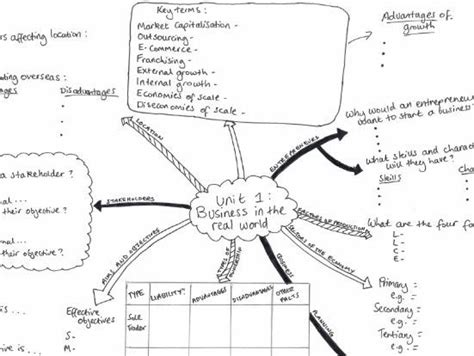 Key terms:
Market Capitalisation -
Outsourcing -
E-Commerce -
Franchising -
External growth -
Internal growth -
Economies of scale -
Diseconomies of scale -
Advantages of
growth
rs affecting location:
ting overseas:
ages Disadvantages
LOCATION
ENTREPRENEURS
Why would an entrepreneur
want to start a business
What skills and charact
will they have?
Skills
a stakeholder?
nal...
their objective?
nal...
their objective?
STAKEHOLDERS
Unit 1:
Business in the
real world
FACTORS OF PRODUCTION
What are the four fa
L-
L-
C-
E-
SECTORS OF THE ECONOMY
Primary:
e.g:-
Secondary:
e.g:-
Tertiary:-
e.g:-
AIMS AND OBJECTIVES
Effective
objectives
S-
M-
is...
TYPES OF
OWNERSHIP
BUSINESS
PLANNING
TYPE LIABILITY? ADVANTAGES DISADVANTAGES OTHER
FACTS
Sole
Trader